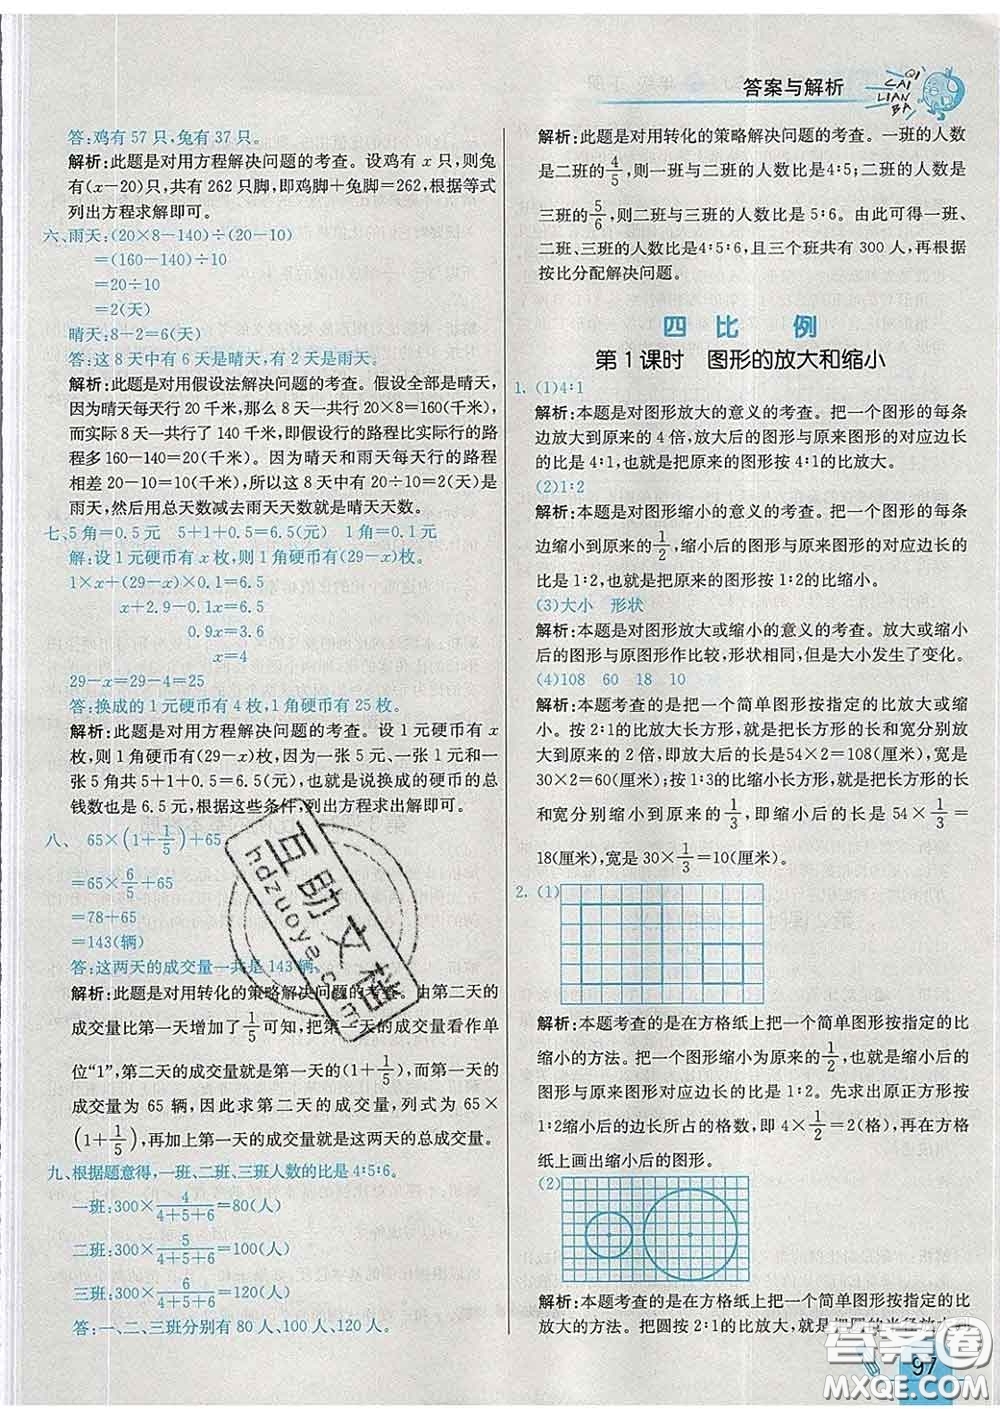 答案与解析
QI
CAI
LIAN
BA
答:鸡有 57 只,兔有 37 只。
解析:此题是对用方程解决问题的考查。设鸡有 x 只,则兔
有(x-20)只,共有 262 只脚,即鸡脚+兔脚=262,根据等式
列出方程求解即可。
六、雨天:(20×8-140)÷(20-10)
=(160-140)÷10
=20÷10
=2(天)
晴天:8-2=6(天)
答:这 8 天中有 6 天是晴天,有 2 天是雨天。
解析:此题是对用假设法解决问题的考查。假设全部是晴天,
因为晴天每天行 20 千米,那么 8 天一共行 20×8=160(千米),
而实际 8 天一共行了 140 千米,即假设行的路程比实际行的路
程多 160-140=20(千米)。因为晴天和雨天每天行的路程
相差 20-10=10(千米),所以这 8 天中有 20÷10=2(天)是
雨天,然后用总天数减去雨天天数就是晴天天数。
七、5 角=0.5 元 5+1+0.5=6.5(元) 1 角=0.1 元
解:设 1 元硬币有 x 枚,则 1 角硬币有(29-x)枚。
1×x+(29-x)×0.1=6.5
x+2.9-0.1x=6.5
0.9x=3.6
x=4
29-x=29-4=25
答:换成的 1 元硬币有 4 枚,1 角硬币有 25 枚。
解析:此题是对用方程解决问题的考查。设 1 元硬币有 x
枚,则 1 角硬币有(29-x)枚,因为一张 5 元、一张 1 元和一
张 5 角共有 5+1+0.5=6.5(元),也就是说换成的硬币的总
钱数也是 6.5 元,根据这些条件,列出方程求出解即可。
八、 65×(1+1/5)+65
=65×6/5+65
=78+65
=143(辆)
答:这两天的成交量一共是 143 辆。
解析:此题是对用转化的策略解决问题的考查。由第二天的
成交量比第一天增加了1/5可知,把第一天的成交量看作单
位"1",第二天的成交量就是第一天的(1+1/5),而第一天的
成交量为 65 辆,因此求第二天的成交量,列式为 65×
(1+1/5),再加上第一天的成交量就是这两天的总成交量。
九、根据题意得,一班、二班、三班人数的比是 4∶5∶6。
一班:300×4/(4+5+6)=80(人)
二班:300×5/(4+5+6)=100(人)
三班:300×6/(4+5+6)=120(人)
答:一、二、三班分别有 80 人、100 人、120 人。
解析:此题是对用转化的策略解决问题的考查。一班的人数
是二班的4/5,则一班与二班的人数比是 4∶5;二班的人数是
三班的5/6,则二班与三班的人数比是 5∶6。由此可得一班、
二班、三班的人数比是 4∶5∶6,且三个班共有 300 人,再根据
按比分配解决问题。
四 比 例
第 1 课时 图形的放大和缩小
1. (1)4∶1
解析:本题是对图形放大的意义的考查。把一个图形的每条
边放大到原来的 4 倍,放大后的图形与原来图形的对应边长
的比是 4∶1,也就是把原来的图形按 4∶1的比放大。
(2)1∶2
解析:本题是对图形缩小的意义的考查。把一个图形的每条
边缩小到原来的1/2,缩小后的图形与原来图形的对应边长的
比是 1∶2,也就是把原来的图形按 1∶2的比缩小。
(3)大小 形状
解析:本题是对图形放大或缩小的意义的考查。放大或缩小
后的图形与原图形作比较,形状相同,但大小发生了变化。
(4)108 60 18 10
解析:本题考查的是把一个简单图形按指定的比放大或缩
小。按 2∶1的比放大长方形,就是把长方形的长和宽分别放
大到原来的 2 倍,即放大后的长是54×2=108(厘米),宽是
30×2=60(厘米);按 1∶3的比缩小长方形,就是把长方形的长
和宽分别缩小到原来的1/3,即缩小后的长是 54×1/3=
18(厘米),宽是 30×1/3=10(厘米)。
2. (1)
解析:本题考查的是在方格纸上把一个简单图形按指定的比
缩小的方法。把一个图形缩小为原来的1/2,也就是缩小后的
图形与原来图形对应边长的比是 1∶2。先求出原正方形按
1∶2缩小后的边长所占的格数,即 4×1/2=2(格),再在方格
纸上画出缩小后的图形。
(2)
解析:本题考查的是在方格纸上把一个简单图形按指定的比
放大的方法。把圆按 2∶1的比放大,就是把圆的半径放大到
97
互助文档
hdzuoye.com
答案圈
MXQE.COM